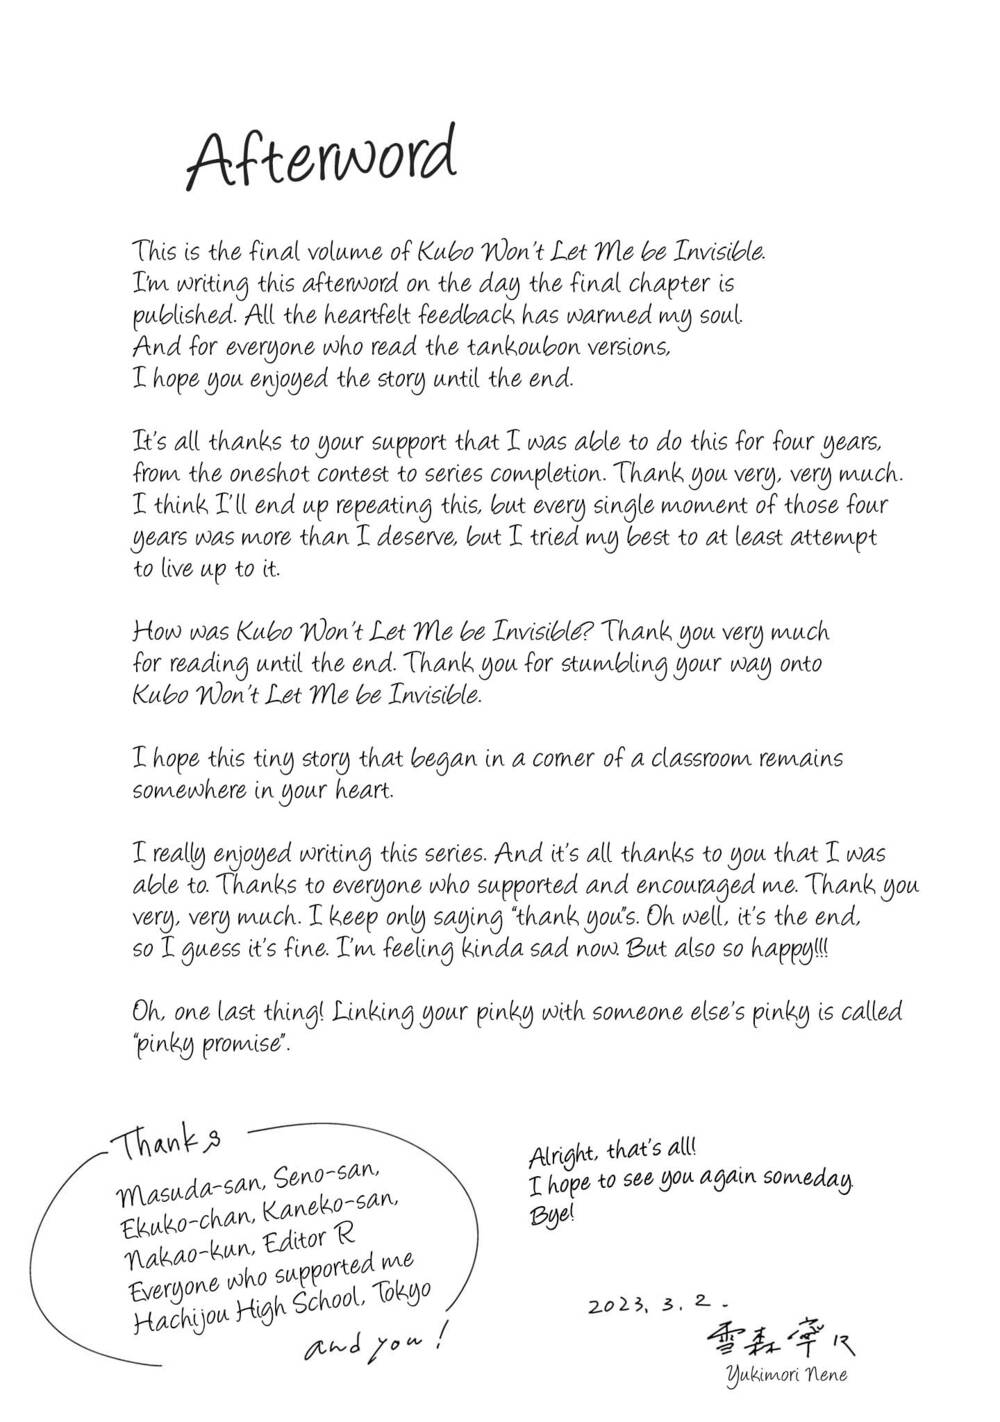 Afterword
This is the final volume of Kubo Won't Let Me be Invisible.
I'm writing this afterword on the day the final chapter is
published. All the heartfelt feedback has warmed my soul.
And for everyone who read the tankoubon versions,
I hope you enjoyed the story until the end.
It's all thanks to your support that I was able to do this for four years,
from the oneshot contest to series completion. Thank you very, very much.
I think I'll end up repeating this, but every single moment of those four
years was more than I deserve, but I tried my best to at least attempt
to live up to it.
How was Kubo Won't Let Me be Invisible? Thank you very much
for reading until the end. Thank you for stumbling your way onto
Kubo Won't Let Me be Invisible.
I hope this tiny story that began in a corner of a classroom remains
somewhere in your heart.
I really enjoyed writing this series. And it's all thanks to you that I was
able to. Thanks to everyone who supported and encouraged me. Thank you
very, very much. I keep only saying "thank you"s. Oh well, it's the end,
so I guess it's fine. I'm feeling kinda sad now. But also so happy!!!
Oh, one last thing! Linking your pinky with someone else's pinky is called
"pinky promise".
Thanks
Masuda-san, Seno-san,
Ekuko-chan, Kaneko-san,
Nakao-kun, Editor R
Everyone who supported me
Hachijou High School, Tokyo
and you!
Alright, that's all!
I hope to see you again someday.
Bye!
2023. 3. 2.
雪森寧々
Yukimori Nene